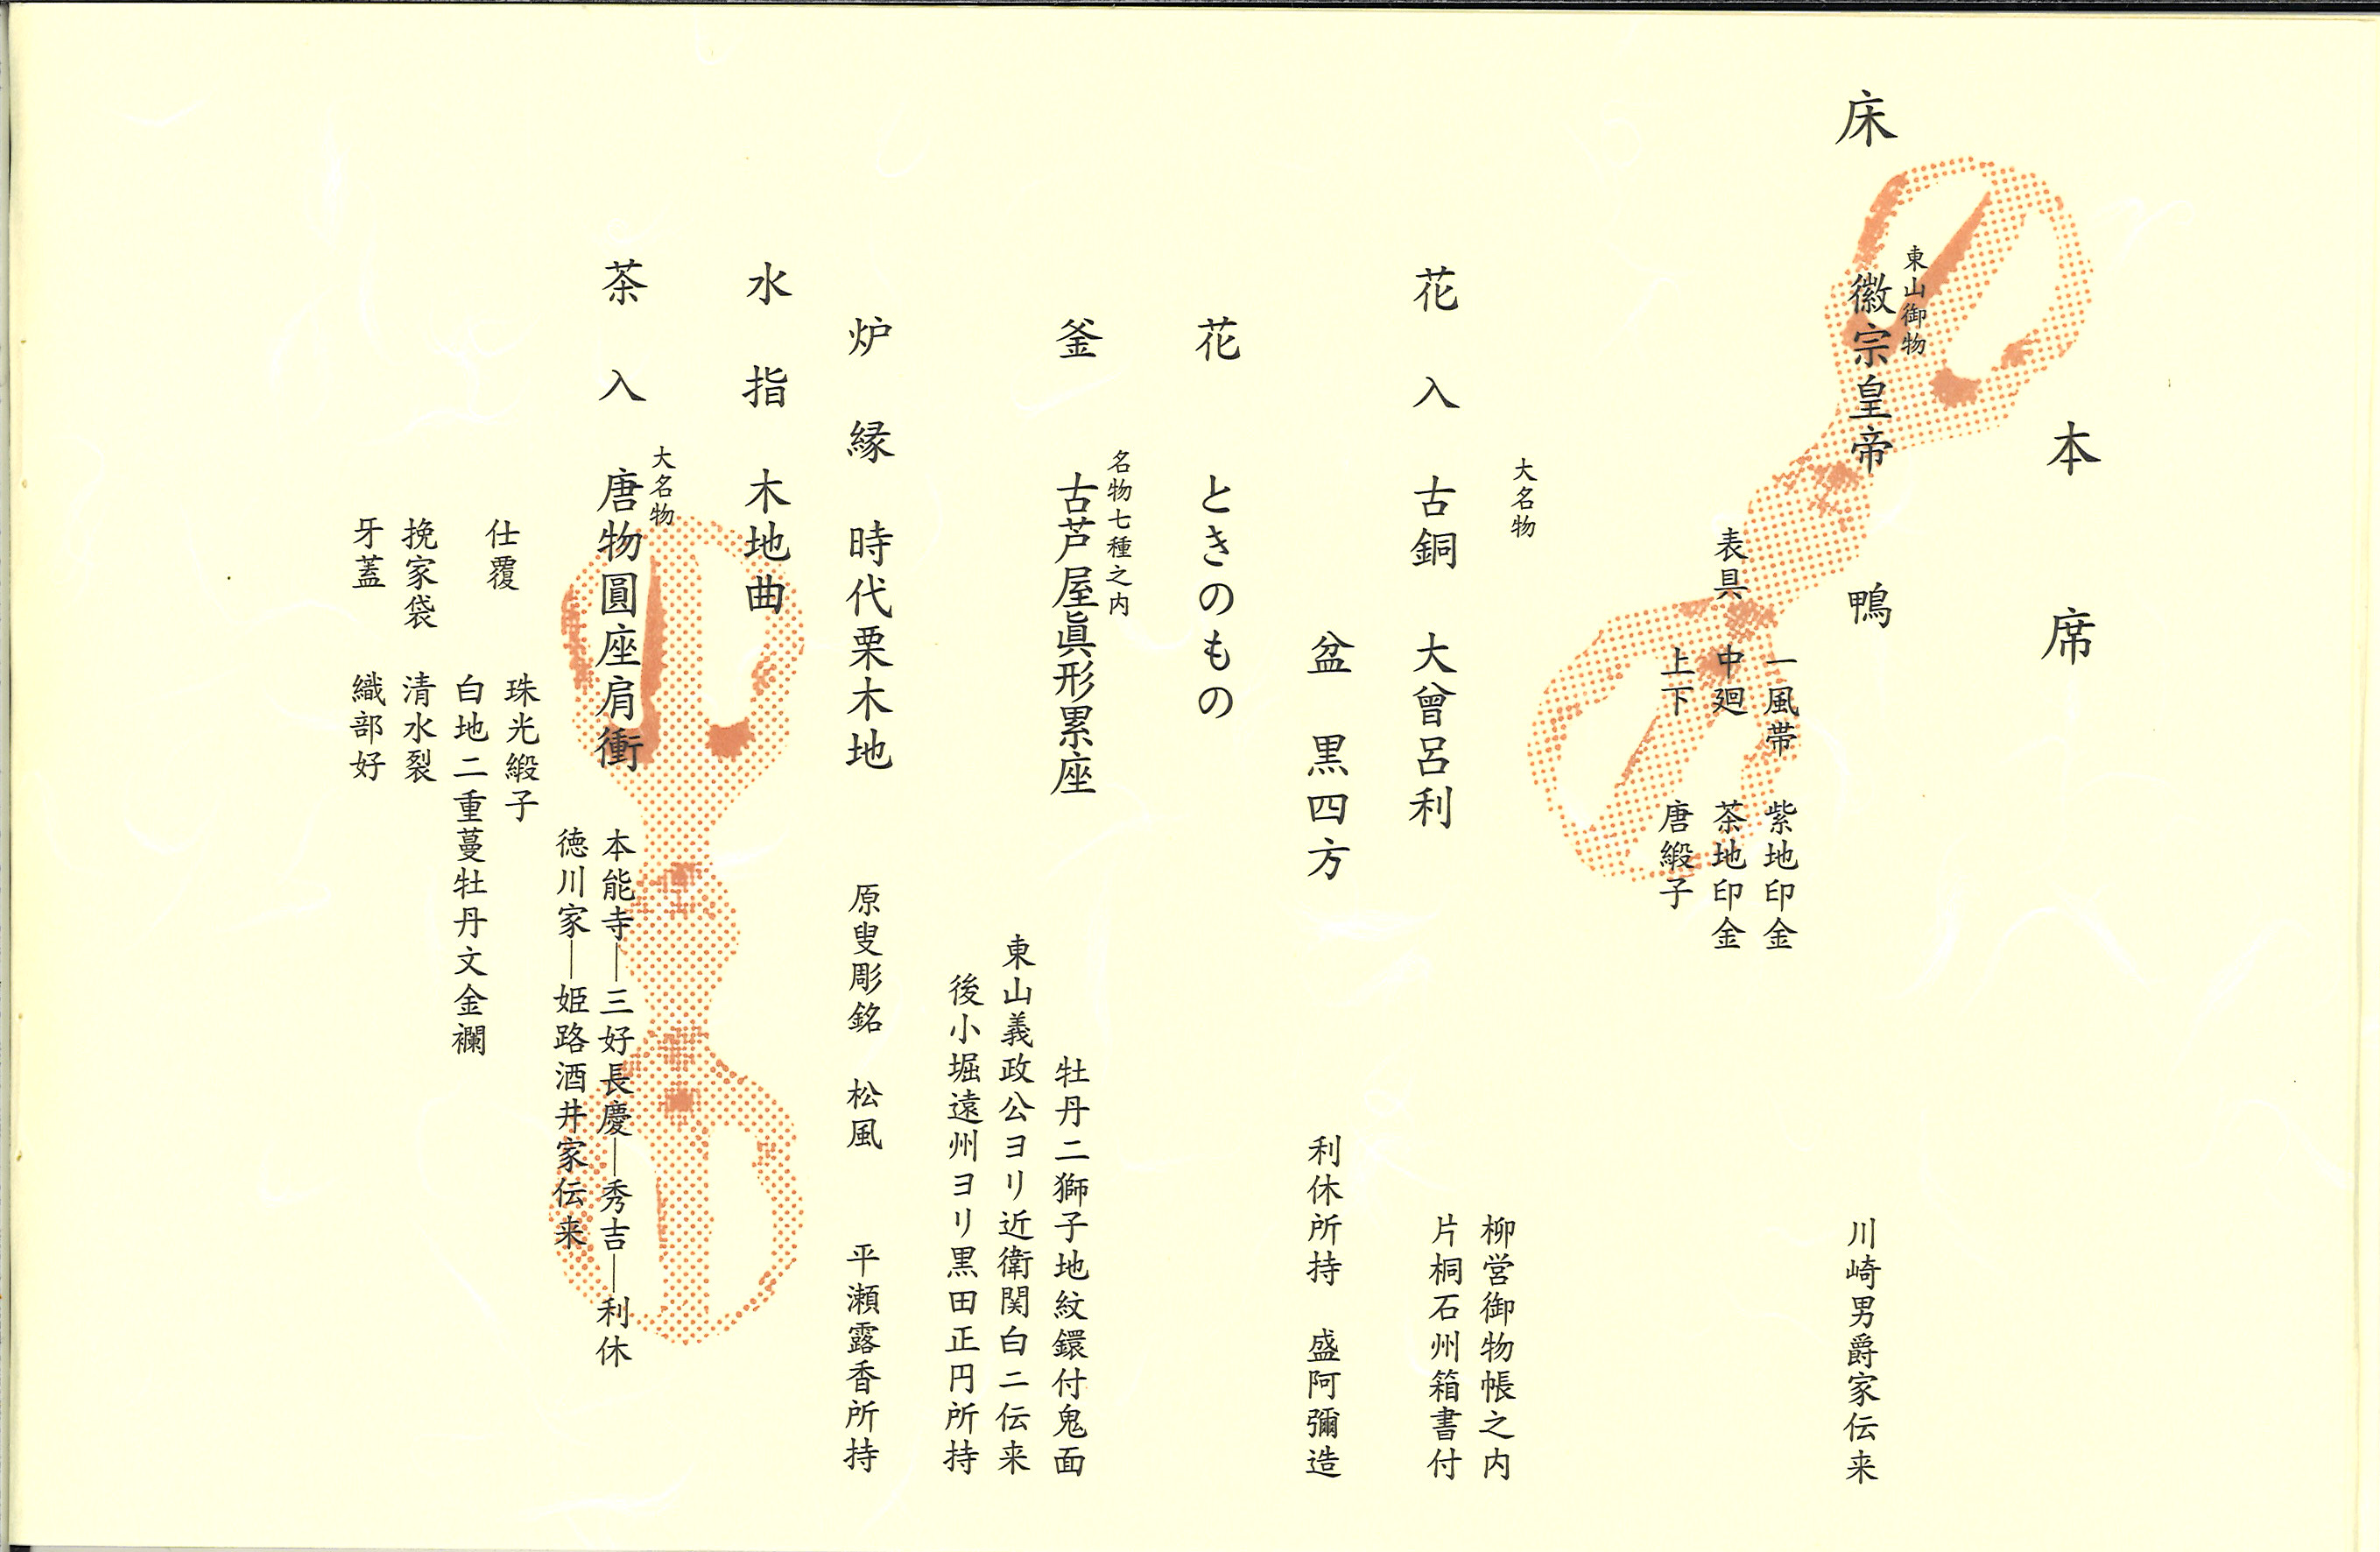 本席
東山御物
床 徽宗皇帝 鴨 川崎男爵家伝来
表具 一風帯 紫地印金
中廻 茶地印金
上下 唐緞子
大名物
花入 古銅 大曾呂利 柳営御物帳之内
片桐石州箱書付
盆 黒四方 利休所持 盛阿彌造
花 ときのもの
名物七種之内
釜 古芦屋眞形累座 牡丹二獅子地紋鐶付鬼面
東山義政公ヨリ近衛関白ニ伝来
後小堀遠州ヨリ黒田正円所持
炉縁 時代栗木地 原叟彫銘 松風 平瀬露香所持
水指 木地曲
大名物
茶入 唐物圓座肩衝 本能寺―三好長慶―秀吉―利休
徳川家―姫路酒井家伝来
仕覆 珠光緞子
白地二重蔓牡丹文金襴
挽家袋 清水裂
牙蓋 織部好